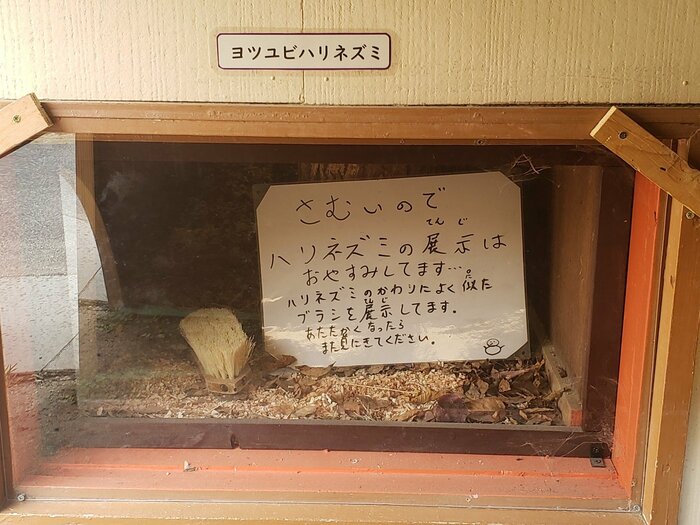 ヨツユビハリネズミ
さむいので
ハリネズミの展示は
てんじ
おやすみしてます…。
ハリネズミのかわりによく似た
に
ブラシを展示してます。
てんじ
あたたかくなったら
また見にきてください。